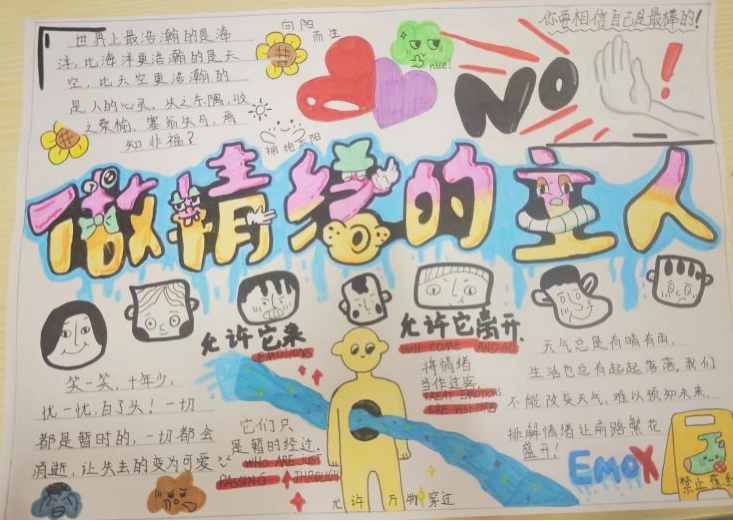 世界上最浩瀚的是海
洋，比海洋更浩瀚的是天
空，比天空更浩瀚的
是人的心灵，失之东隅，收
之桑榆，塞翁失马，焉
知非福？
向阳
而生
拥抱太阳
nice!
你要相信自己是最棒的！
NO!
做情绪的主人
允许它来
EMOTIONS
允许它离开.
WILL COME AND GO
笑一笑，十年少，
忧一忧，白了头！一切
都是暂时的，一切都会
消逝，让失去的变为可爱
它们只
是暂时经过.
WHO ARE JUST
PASSING THROUGH
将情绪
当作过客，
TREAT EMOTIONS
LIKE VISITORS
天气总是有晴有雨，
生活也总有起起落落。我们
不能改变天气，难以预知未来，
排解情绪让前路繁花
盛开！
允许万物穿过
EMO
禁止